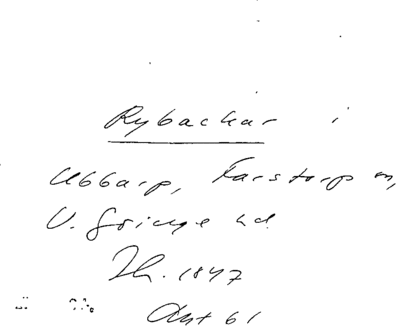 Rybackar i
Ubbarp, Farstorp sn,
V. Göinge hd.
Th. 1847
Ant 61